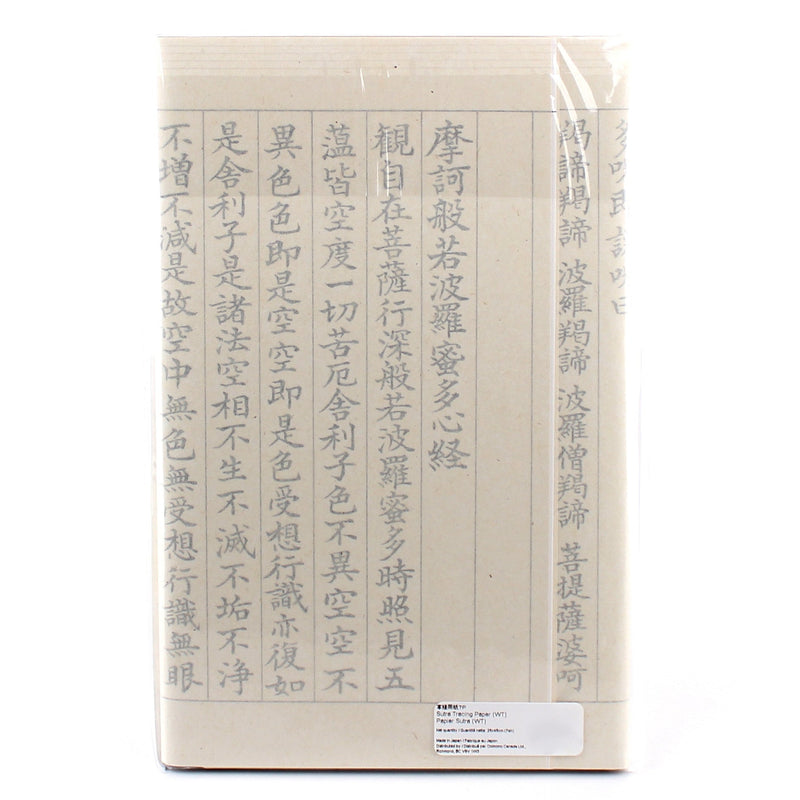 多呪即説呪曰
羯諦羯諦 波羅羯諦 波羅僧羯諦 菩提薩婆呵
摩訶般若波羅蜜多心経
観自在菩薩行深般若波羅蜜多時照見五
蘊皆空度一切苦厄舎利子色不異空空不
異色色即是空空即是色受想行識亦復如
是舎利子是諸法空相不生不滅不垢不浄
不増不減是故空中無色無受想行識無眼
写経用紙
Sutra Tracing Paper (WT)
Papier Sutra (WT)
Net quantity / Quantité nette
Made in Japan / Fabriqué au Japon
Distributed by / Distribué par: Oomomo Canada Ltd.,
Richmond, BC V6V